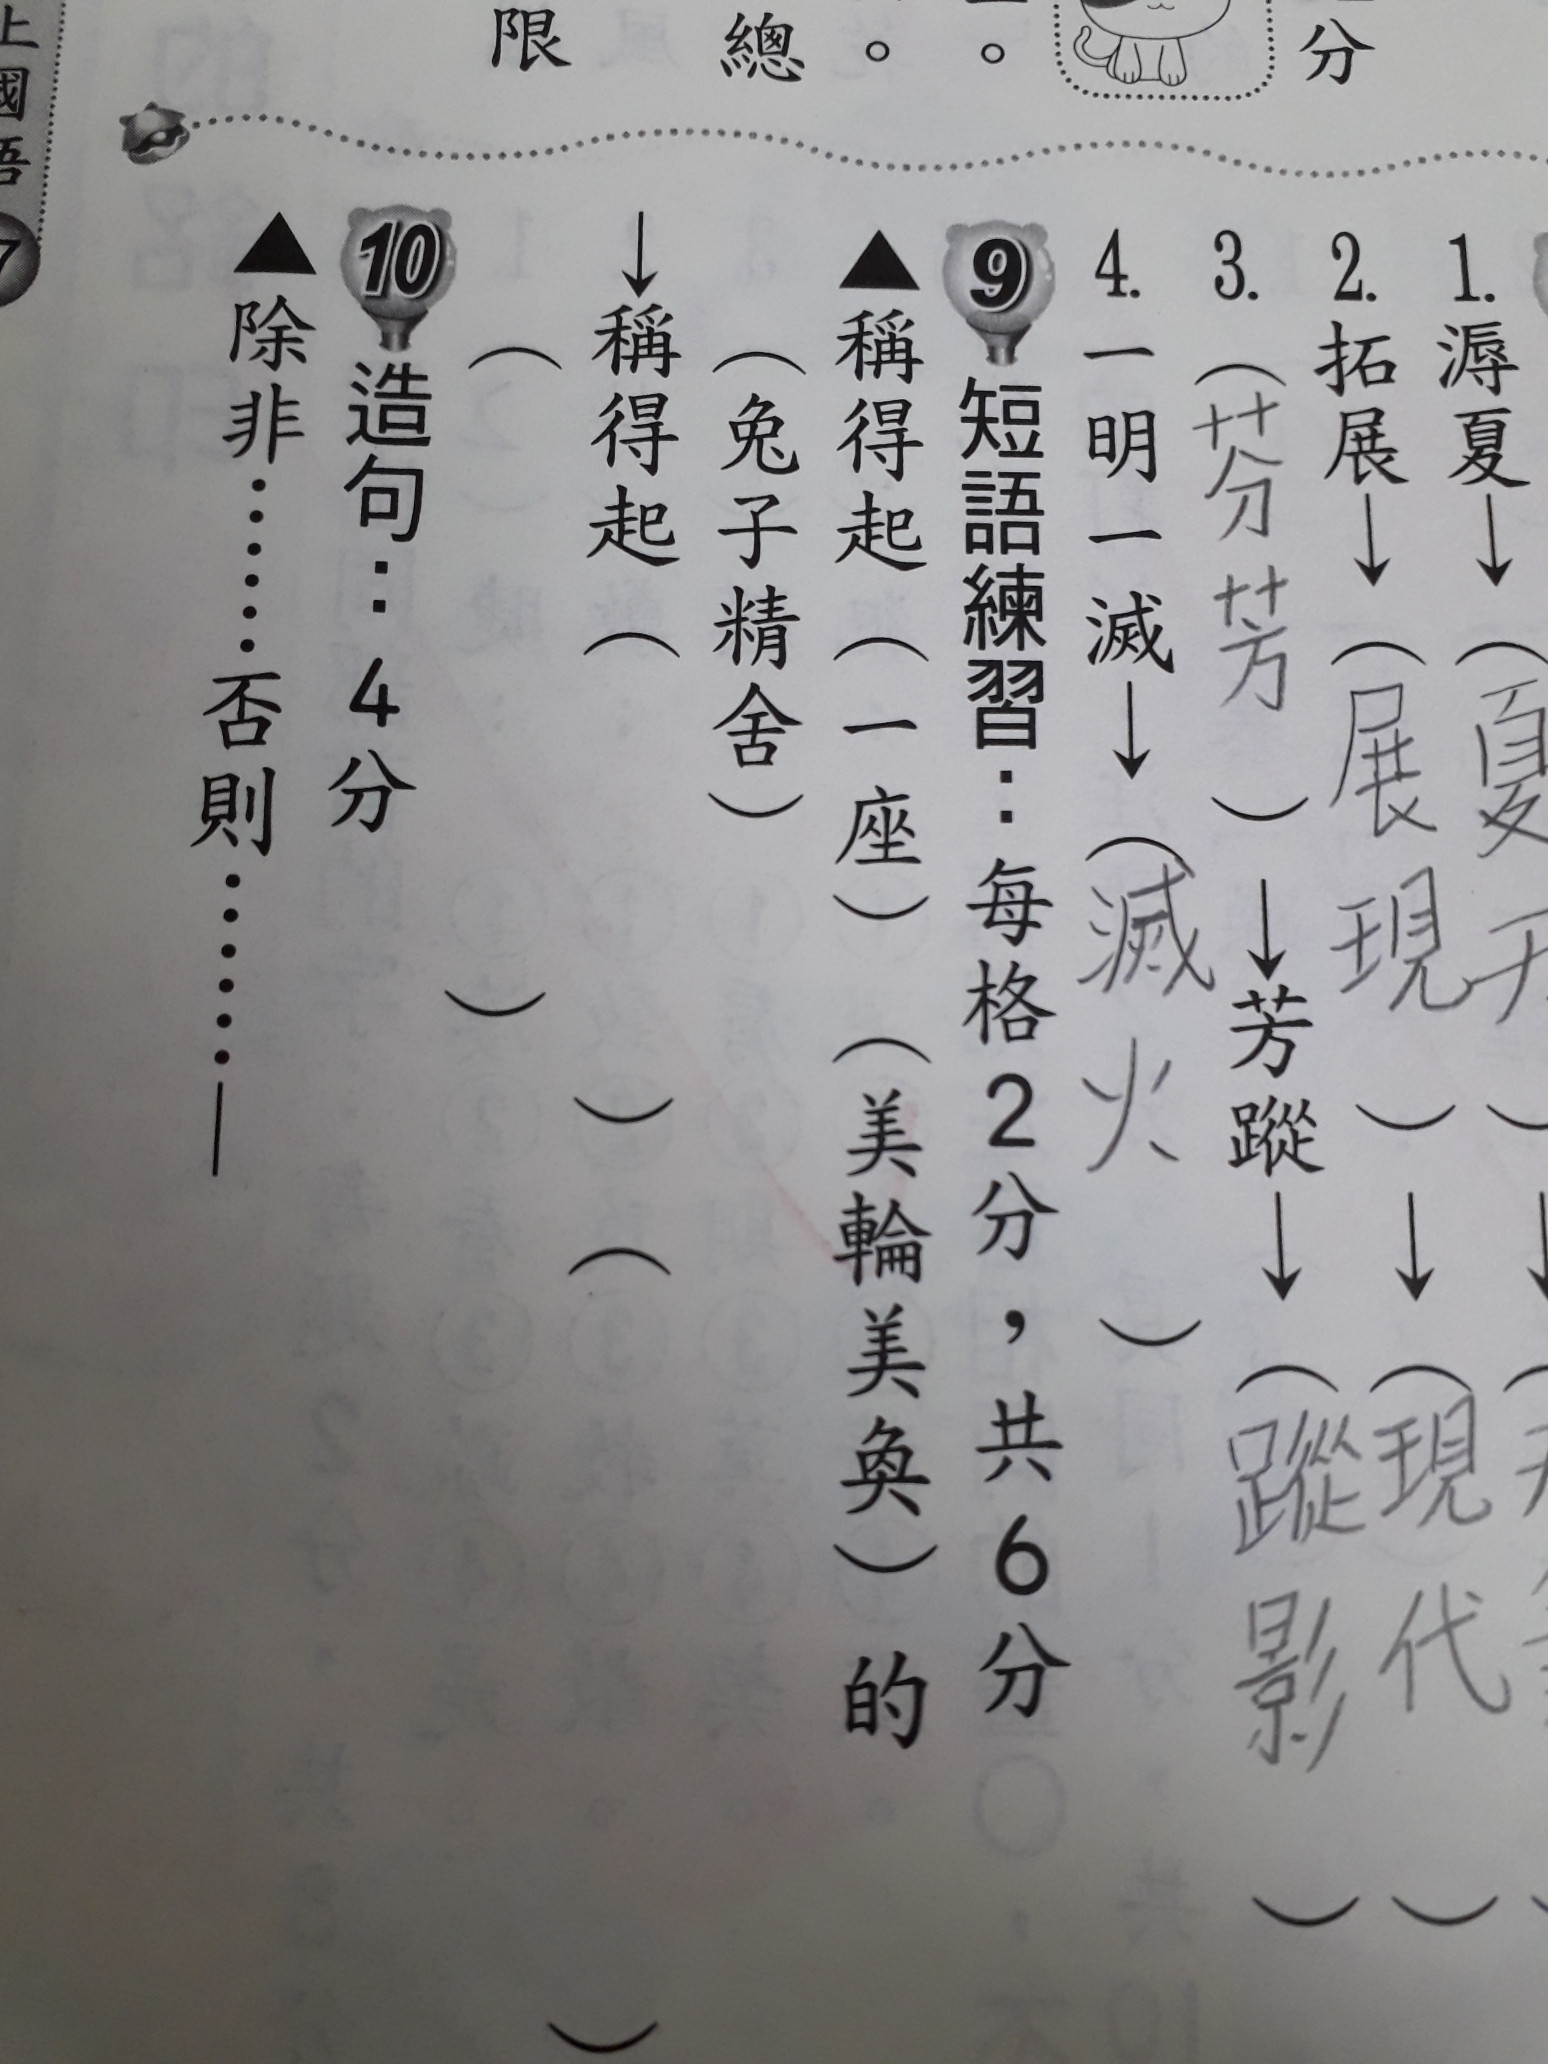 分
總
限
1.溽夏→（夏天）
2.拓展→（展現）→（現代）
3.（芬芳）→芳蹤→（蹤影）
4.一明一滅→（滅火）
9 短語練習：每格2分，共6分
▲稱得起（一座）（美輪美奐）的
（兔子精舍）
→稱得起（　）（　）
（　）
10 造句：4分
▲除非……否則……
上國語 7